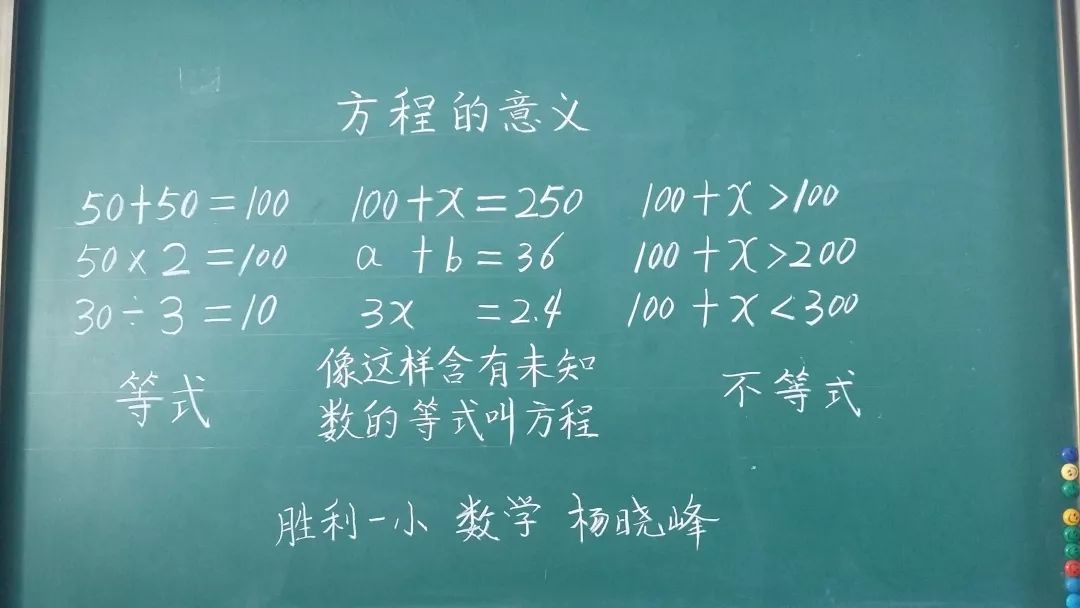 方程的意义
50+50=100 100+x=250 100+x>100
50×2=100 a+b=36 100+x>200
30÷3=10 3x=2.4 100+x<300
等式 像这样含有未知数的等式叫方程 不等式
胜利一小 数学 杨晓峰